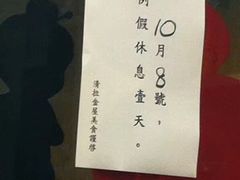 10月8號，
例假休息壹天。
清拉盒屋美食謹啓